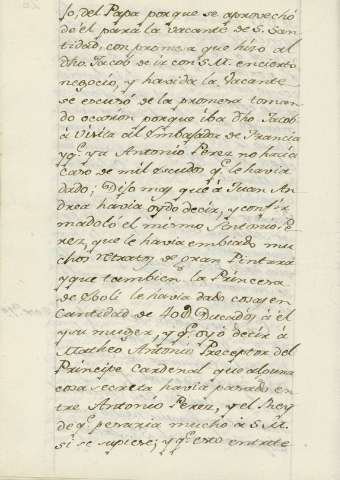 so, del Papa porque se aprovechó
de el para la vacante de S. San
tidad, con promesa que hizo al
dho Jacob de ir con S.M. en cierto
negocio, y havida la Vacante
se escusó de la promesa toman
do ocasion porque iba dho Jacob
á Visita al Embajador de Francia
yq.e ya Antonio Perez no hacia
caso de mil escudos q.e le havia
dado; Dijo mas que á Juan An
drea havia oydo decir, y confir
madolo el mismo Antonio Pe
rez, que le havia embiado mu
chos retratos de gran Pintura
y que tambien la Princesa
de Eboli le havia dado cosas en
Cantidad de 40D Ducados á él
y su muger, y q.e oyó decir á
Matheo Antonio Preceptor del
Principe Cardenal que alguna
cosa secreta havia pasado en
tre Antonio Perez, y el Rey
de q.e pesaria mucho á S.M.
si se supiese; y q.e esto entrete